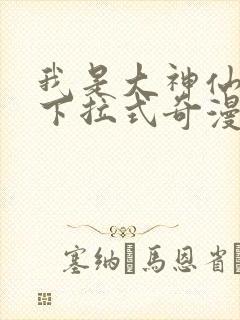 我是大神仙
下拉式奇漫
塞纳·馬恩省